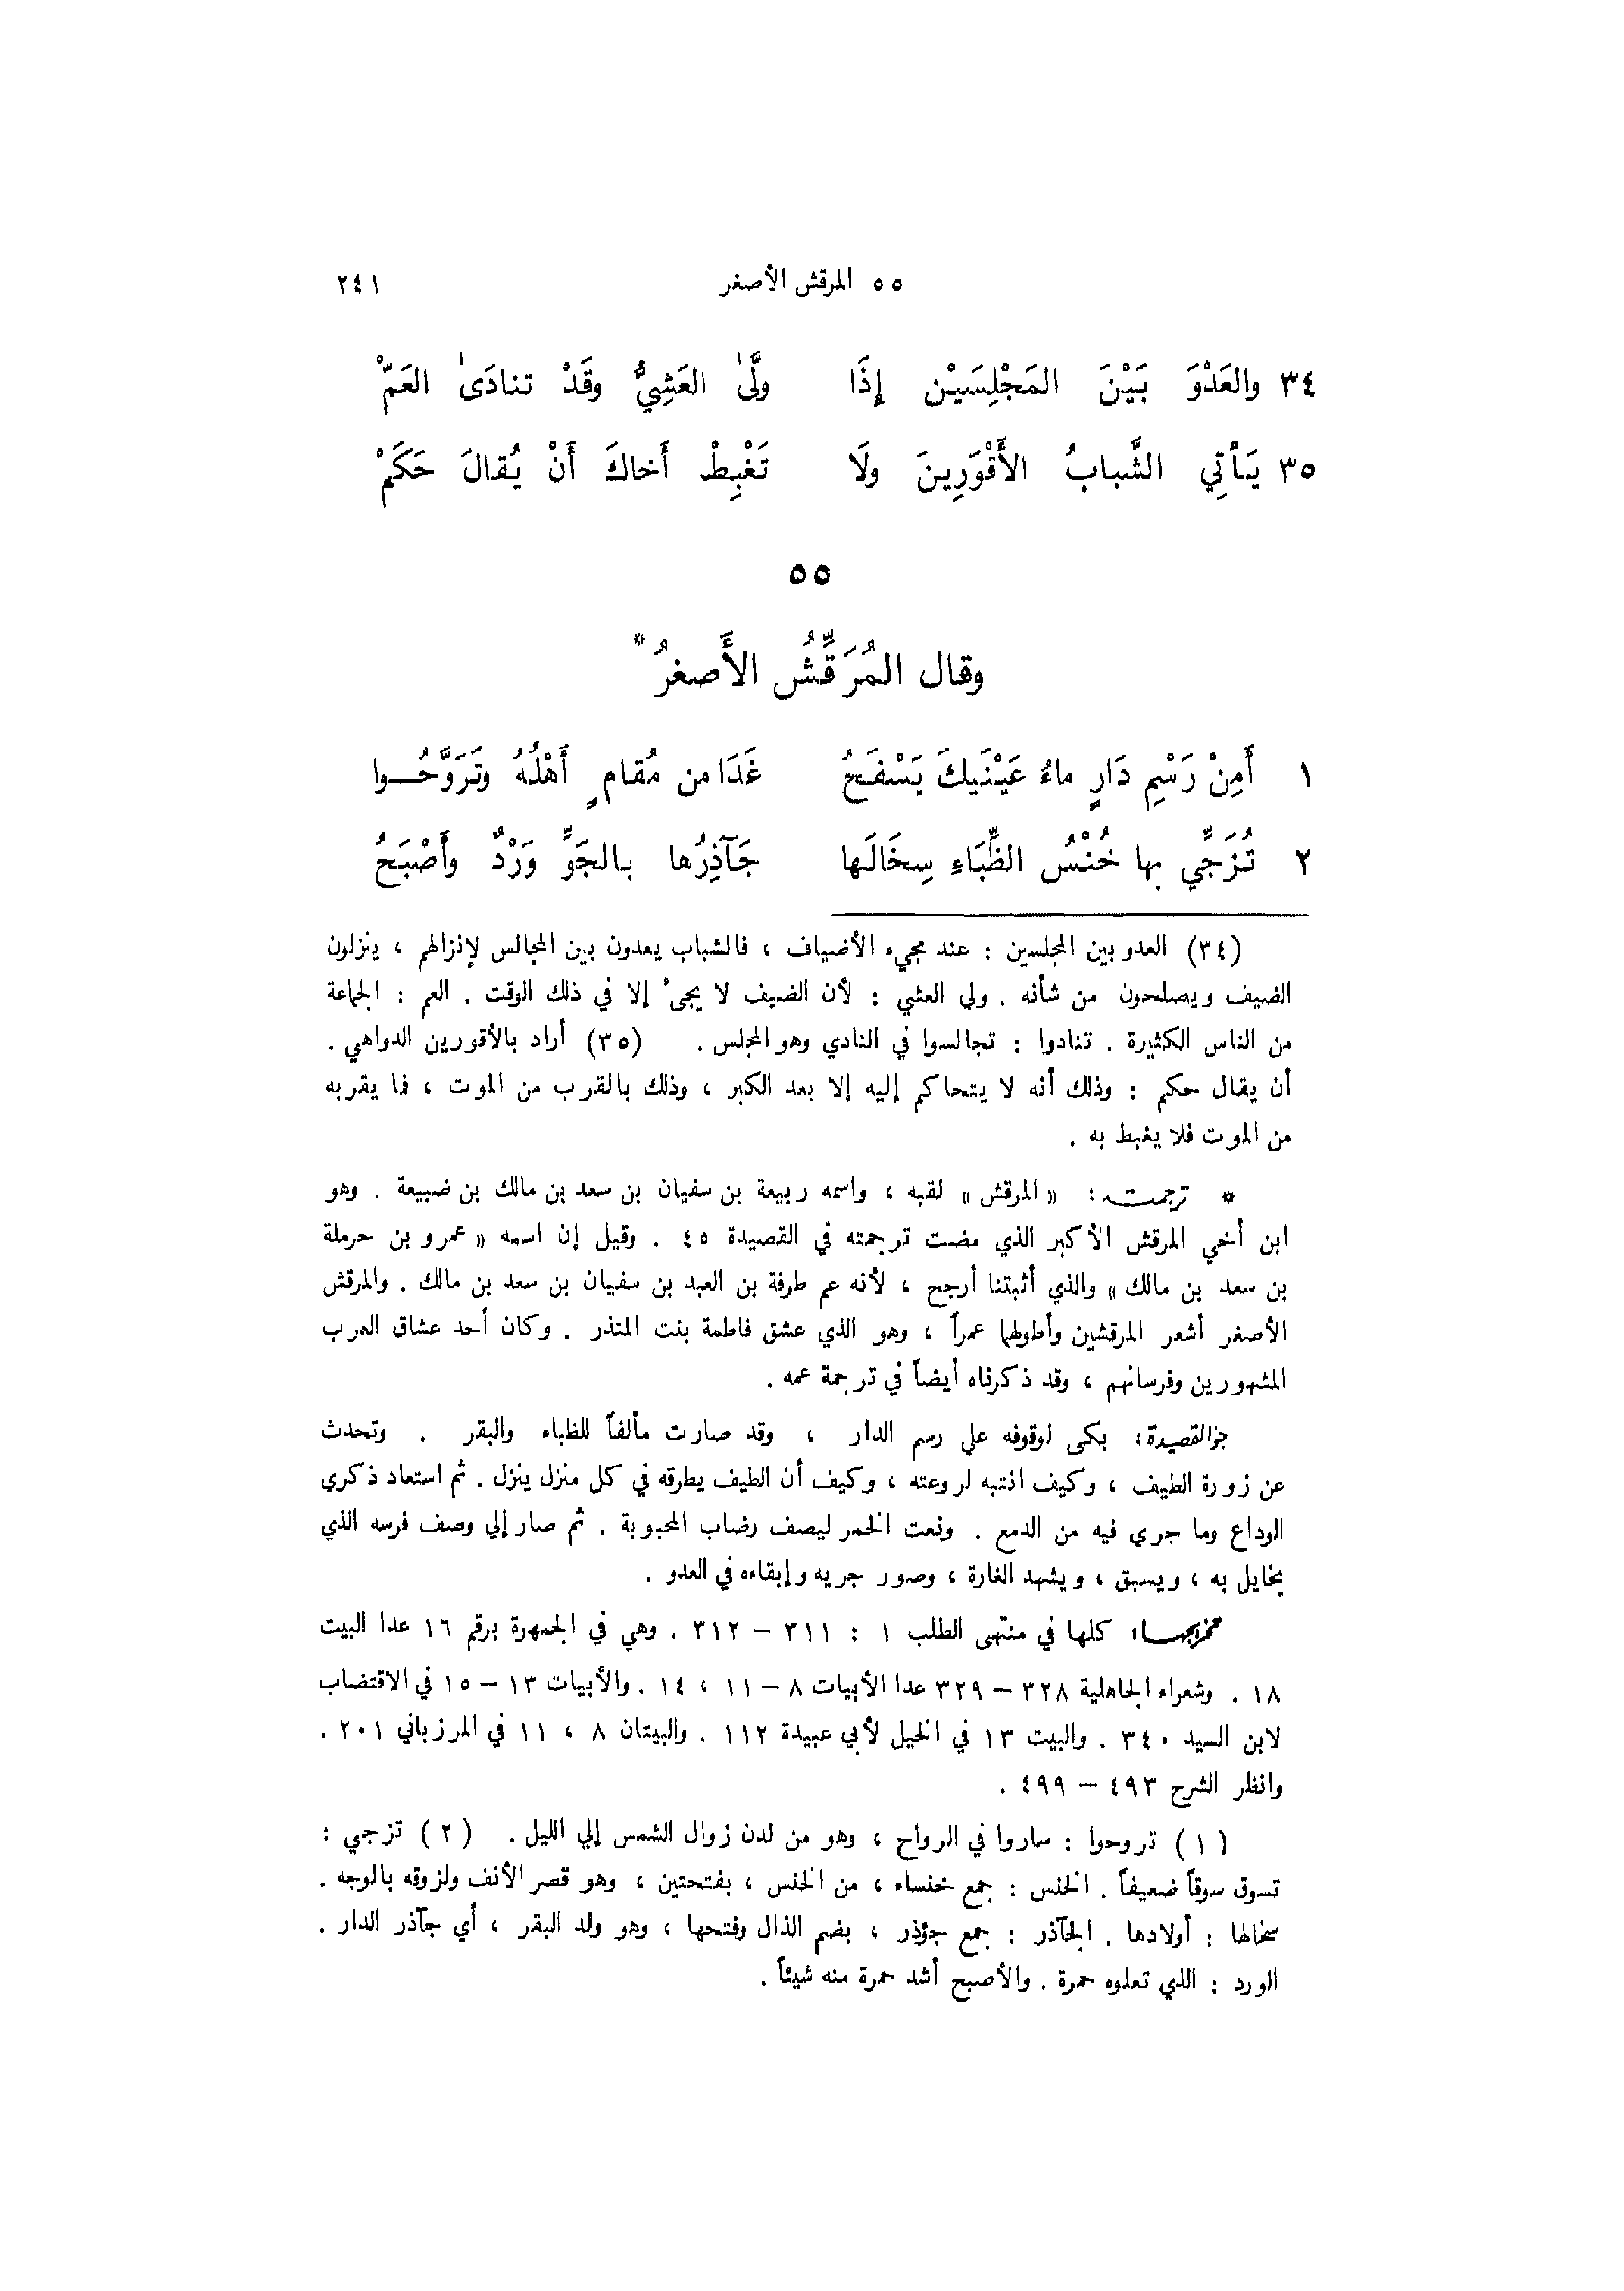 ٥٥ المرقش الأصغر ٢٤١
٣٤ والعَدْوَ بَيْنَ المَجْلِسَيْنِ إِذَا ولَّىٰ العَشِيُّ وقَدْ تنادَىٰ العَمّْ
٣٥ يَأْتِي الشَّبابُ الأَقْوَرِينَ ولَا تَغْبِطْ أَخاكَ أَنْ يُقالَ حَكَمْ
٥٥
وقال المُرَقِّشُ الأَصغرُ *
١ أَمِنْ رَسْمِ دَارٍ ماءُ عَيْنَيكَ يَسْفَحُ غَدَا من مُقامٍ أَهْلُهُ وتَرَوَّحُوا
٢ تُزَجِّي بها خُنْسُ الظِّبَاءِ سِخَالَها جَآذِرُها بالجَوِّ وَرْدٌ وأَصْبَحُ
(٣٤) العدو بين المجلسين : عند مجيء الأضياف ، فالشباب يعدون بين المجالس لإنزالهم ، ينزلون
الضيف ويصلحون من شأنه . ولي العشي : لأن الضيف لا يجيء إلا في ذلك الوقت . العم : الجماعة
من الناس الكثيرة . تنادوا : تجالسوا في النادي وهو المجلس . (٣٥) أراد بالأقورين الدواهي .
أن يقال حكم : وذلك أنه لا يتحاكم إليه إلا بعد الكبر ، وذلك بالقرب من الموت ، فما يقربه
من الموت فلا يغبط به .
* ترجمته : « المرقش » لقبه ، واسمه ربيعة بن سفيان بن سعد بن مالك بن ضبيعة . وهو
ابن أخي المرقش الأكبر الذي مضت ترجمته في القصيدة ٤٥ . وقيل إن اسمه « عمرو بن حرملة
بن سعد بن مالك » والذي أثبتنا أرجح ، لأنه عم طرفة بن العبد بن سفيان بن سعد بن مالك . والمرقش
الأصغر أشعر المرقشين وأطولهما عمراً ، وهو الذي عشق فاطمة بنت المنذر . وكان أحد عشاق العرب
المشهورين وفرسانهم ، وقد ذكرناه أيضاً في ترجمة عمه .
جو القصيدة : بكى لوقوفه علي رسم الدار ، وقد صارت مألفاً للظباء والبقر . وتحدث
عن زورة الطيف ، وكيف انتبه لروعته ، وكيف أن الطيف يطرقه في كل منزل ينزل . ثم استعاد ذكري
الوداع وما جري فيه من الدمع . ونعت الخمر ليصف رضاب المحبوبة . ثم صار إلي وصف فرسه الذي
يخايل به ، ويسبق ، ويشهد الغارة ، وصور جريه وإبقاءه في العدو .
تخريجها : كلها في منتهى الطلب ١ : ٣١١ – ٣١٢ . وهي في الجمهرة برقم ١٦ عدا البيت
١٨ . وشعراء الجاهلية ٣٢٨ – ٣٢٩ عدا الأبيات ٨ – ١١ ، ١٤ . والأبيات ١٣ – ١٥ في الاقتضاب
لابن السيد ٣٤٠ . والبيت ١٣ في الخيل لأبي عبيدة ١١٢ . والبيتان ٨ ، ١١ في المرزباني ٢٠١ .
وانظر الشرح ٤٩٣ – ٤٩٩ .
(١) تروحوا : ساروا في الرواح ، وهو من لدن زوال الشمس إلي الليل . (٢) تزجي :
تسوق سوقاً ضعيفاً . الخنس : جمع خنساء ، من الخنس ، بفتحتين ، وهو قصر الأنف ولزوقه بالوجه .
سخالها : أولادها . الجآذر : جمع جؤذر ، بضم الذال وفتحها ، وهو ولد البقر ، أي جآذر الدار .
الورد : الذي تعلوه حمرة . والأصبح أشد حمرة منه شيئاً .